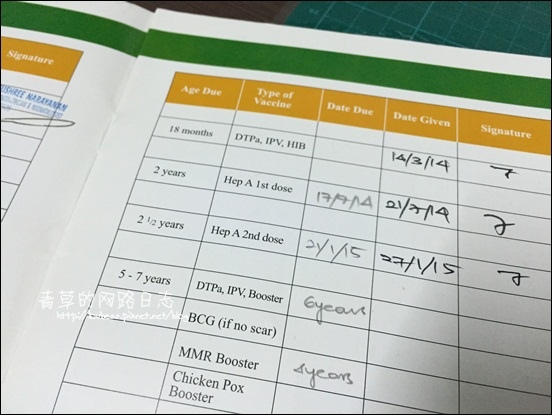 Signature
NARAYANAN
Age Due Type of Vaccine Date Due Date Given Signature
18 months DTPa, IPV, HIB 14/3/14
2 years Hep A 1st dose 17/7/14 21/7/14
2 1/2 years Hep A 2nd dose 21/1/15 27/1/15
5 - 7 years DTPa, IPV, Booster 6years
BCG (if no scar)
MMR Booster 4years
Chicken Pox Booster
青草的网路日志